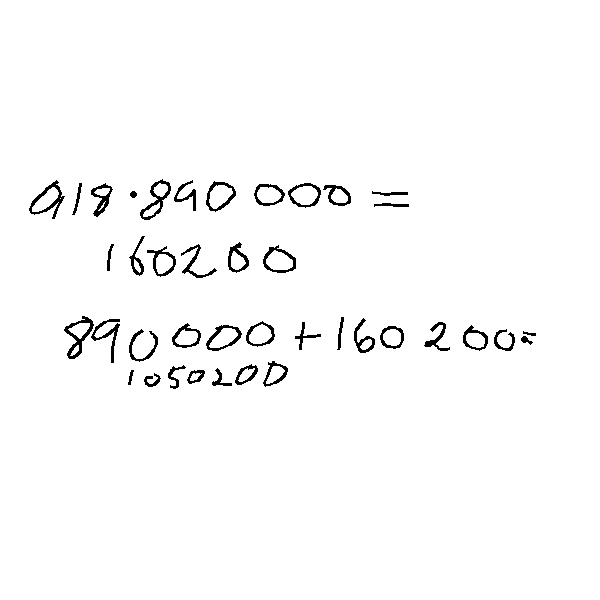 918·890 000=
160200
890 000+160 200=
1050200